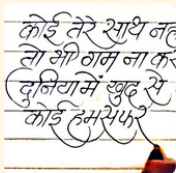 कोई तेरे साथ नह
तो भी गम ना कर
दुनिया में खुद से
कोई हमसफर